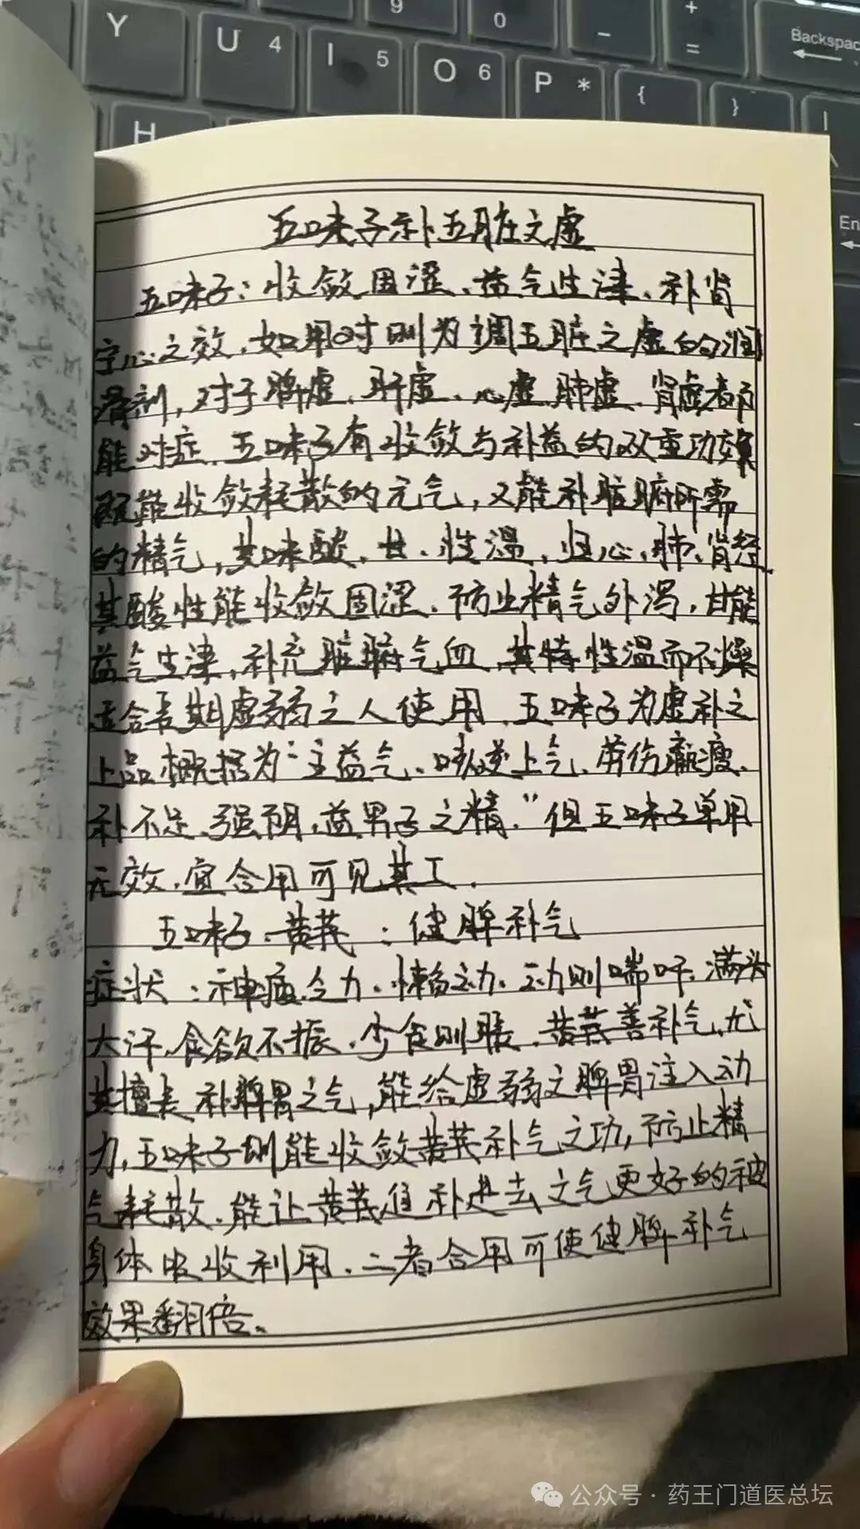 Y
U 4
I 5
O 6
P *
9
0
-
+
=
Backspac
{
}
|
\
H
En
五味子补五脏之虚
五味子：收敛固涩、益气生津、补肾
宁心之效，如用对则为调五脏之虚的润
滑剂，对于脾虚、肝虚、心虚、肺虚、肾虚都可
能对症，五味子有收敛与补益的双重功效
既能收敛耗散的元气，又能补脏腑所需
的精气，其味酸、甘、性温，归心、肺、肾经
其酸性能收敛固涩、防止精气外泻，甘能
益气生津，补充脏腑气血，其特性温而不燥
适合长期虚弱之人使用，五味子为虚补之
上品概括为“主益气、咳逆上气、劳伤羸瘦、
补不足、强阴，益男子之精。”但五味子单用
无效，宜合用可见其工．
五味子·黄芪：健脾补气
症状：神疲乏力、懒动、动则喘吁、满头
大汗，食欲不振，少食则胀，黄芪善补气，尤
其擅长补脾胃之气，能给虚弱之脾胃注入动
力，五味子则能收敛黄芪补气之功，防止精
气耗散，能让黄芪往补进去之气更好的被
身体吸收利用，二者合用可使健脾补气
效果翻倍。
公众号·药王门道医总坛